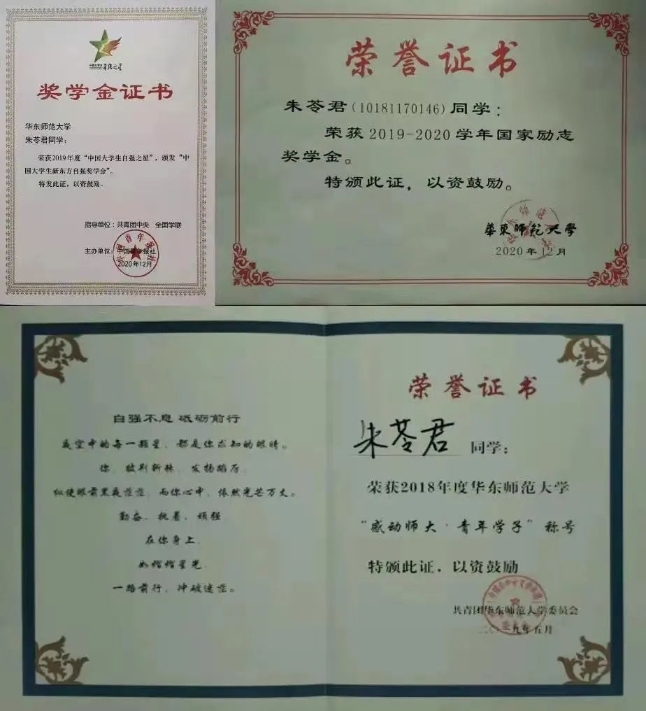 奖学金证书
华东师范大学
朱苓君同学：
荣获2019年度“中国大学生自强之星”，颁发“中
国大学生新东方自强奖学金”。
特发此证，以资鼓励。
指导单位：共青团中央 全国学联
主办单位：中国青年报社
2020年12月
荣誉证书
朱苓君(10181170146)同学：
荣获2019-2020学年国家励志
奖学金。
特颁此证，以资鼓励。
華東师范大學
2020年12月
自强不息 砥砺前行
夜空中的每一颗星，都是你求知的眼睛。
你，披荆斩棘，发扬蹈厉，
纵使眼前黑夜茫茫，而你心中，依然光芒万丈。
勤奋、执着、顽强
在你身上
如熠熠星光
一路前行，冲破迷茫。
荣誉证书
朱苓君 同学：
荣获2018年度华东师范大学
“感动师大·青年学子”称号
特颁此证，以资鼓励
共青团华东师范大学委员会
二〇一九年五月